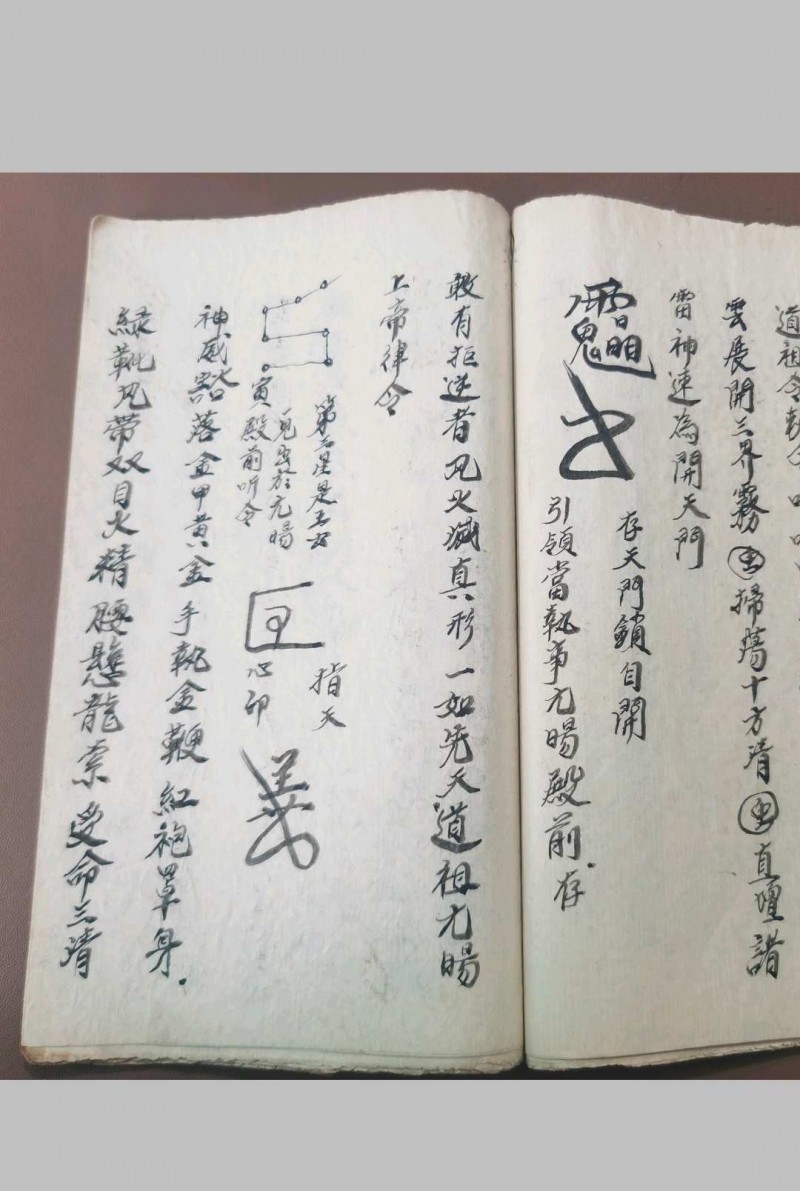 道祖令
雲展開三界霧 掃蕩十方清 直壇諸
雷神速為開天門
存天門鎖自開
引領當執事尢暘殿前存
敢有拒逆者风火滅真形一如先天道祖尢暘
上帝律令
第 星是
尢暘
寅殿前听令
指天
心印
神威豁落金甲黄金手執金鞭紅袍罩身
緑靴风带双目火精腰懸龍索受命三清